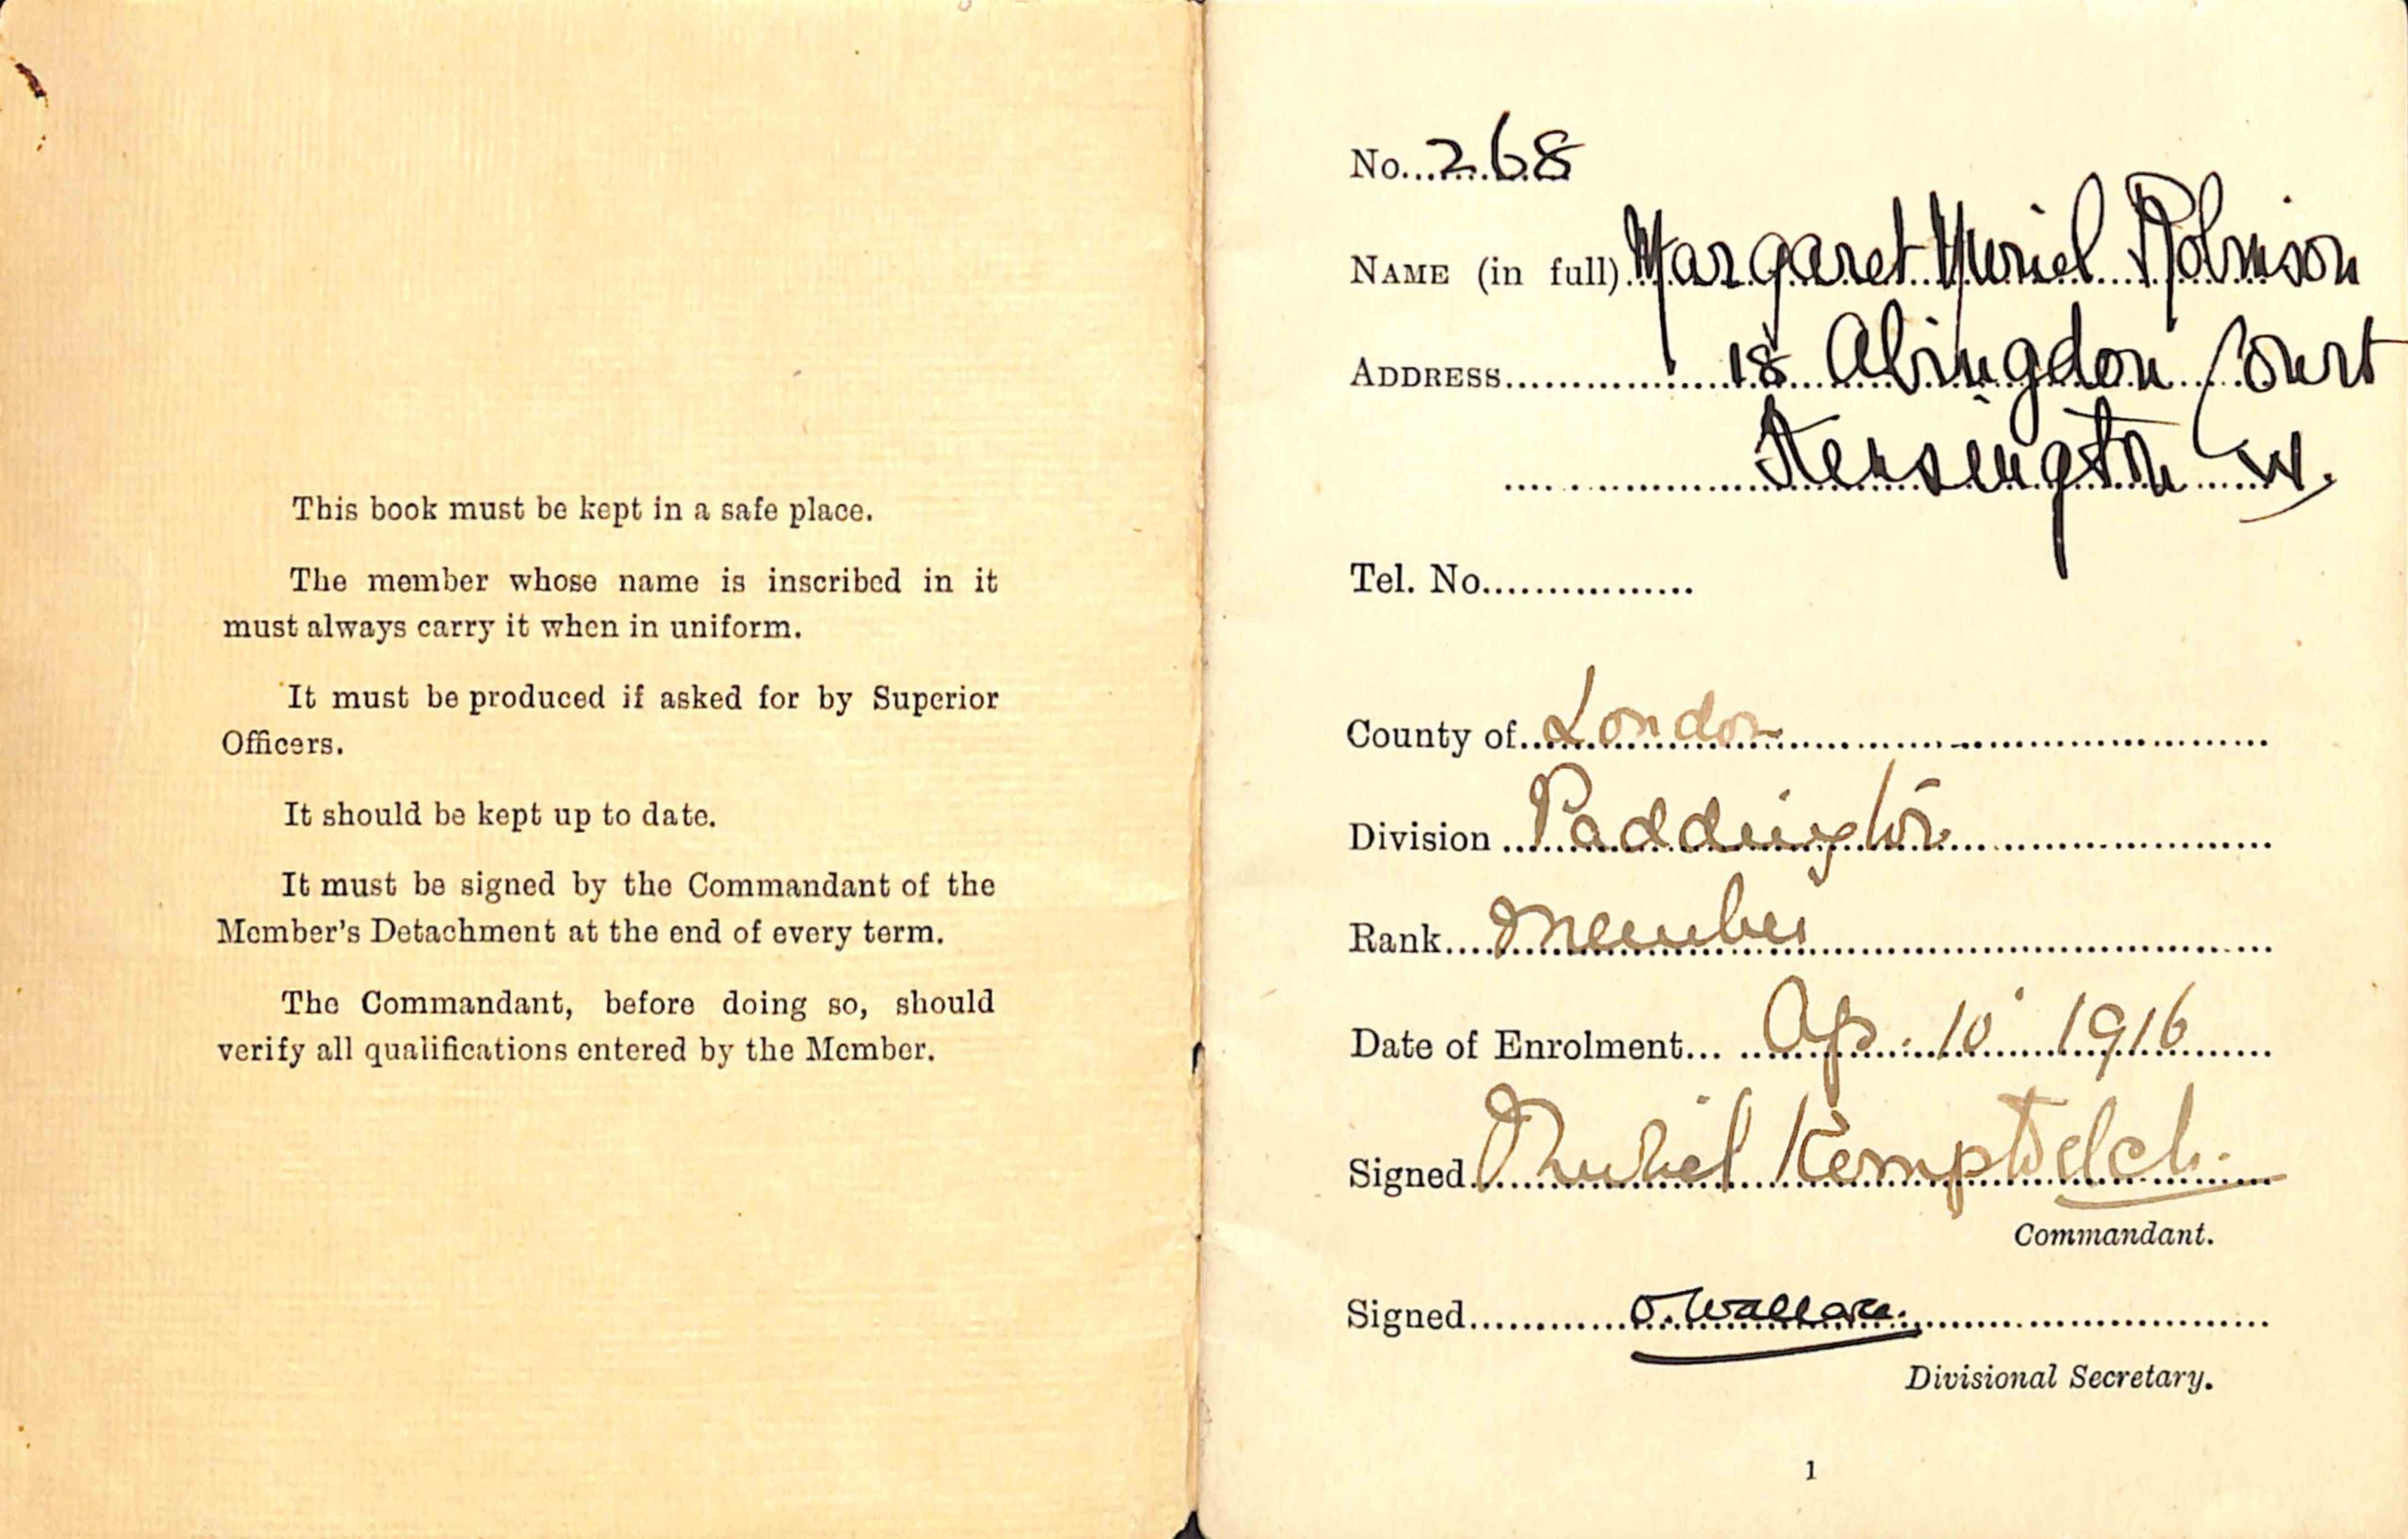 This book must be kept in a safe place.
The member whose name is inscribed in it
must always carry it when in uniform.
It must be produced if asked for by Superior
Officers.
It should be kept up to date.
It must be signed by the Commandant of the
Member's Detachment at the end of every term.
The Commandant, before doing so, should
verify all qualifications entered by the Member.
No. 268
NAME (in full) Margaret Muriel Robinson
ADDRESS 18 Abingdon Court
Kensington W.
Tel. No.
County of London
Division Paddington
Rank Member
Date of Enrolment Ap. 10 1916
Signed Muriel Kemp Welch.
Commandant.
Signed O. Wallace.
Divisional Secretary.
1